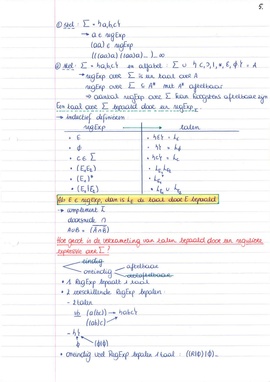 5.
① stel: Σ = {a,b,c}
→ a ∈ regExp
(aa) ∈ regExp
(((aa)a)(aa)a)...)... ∞
② stel: Σ = {a,b,c} en alfabet: Σ ∪ {ε, ϕ, ), (, *, |} = A
→ regExp over Σ is een taal over A
→ regExp over Σ ⊆ A* → A* aftelbaar
→ aantal regExp over Σ kan hoogstens aftelbaar zijn
Een taal over Σ bepaald door een regExp
→ inductief definiëren
regExp talen
• ε • {ε} = Lε
• ϕ • ∅ = Lϕ
• c ∈ Σ • {c} = Lc
• (E₁E₂)
• (E₁)*
• (E₁|E₂)
Als E ∈ regExp, dan is L_E de taal door E bepaald
→ complement
doorsnede ∩
Hoe groot is de verzameling van talen bepaald door een reguliere
expressie over Σ?
eindig
oneindig aftelbaar
overaftelbaar
• 1 RegExp bepaalt 1 taal
• 2 verschillende RegExp bepalen:
- 2 talen
vb (a|(b|c)) → {a,b,c}
((a|b)|c)
ϕ (ϕ|ϕ)
• oneindig veel RegExp bepalen 1 taal: ((ϕ|ϕ)|ϕ)...